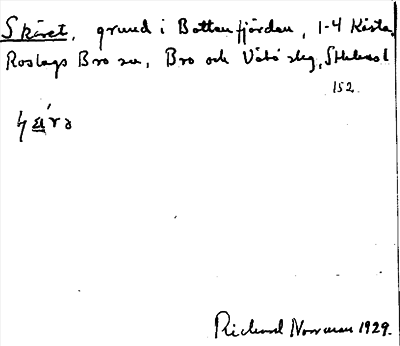 Skäret, grund i Bottenfjärden, 1-4 Kista
Roslags Bro sn, Bro och Vätö skg, Sthlms l
152.
Richard Norrman 1929.